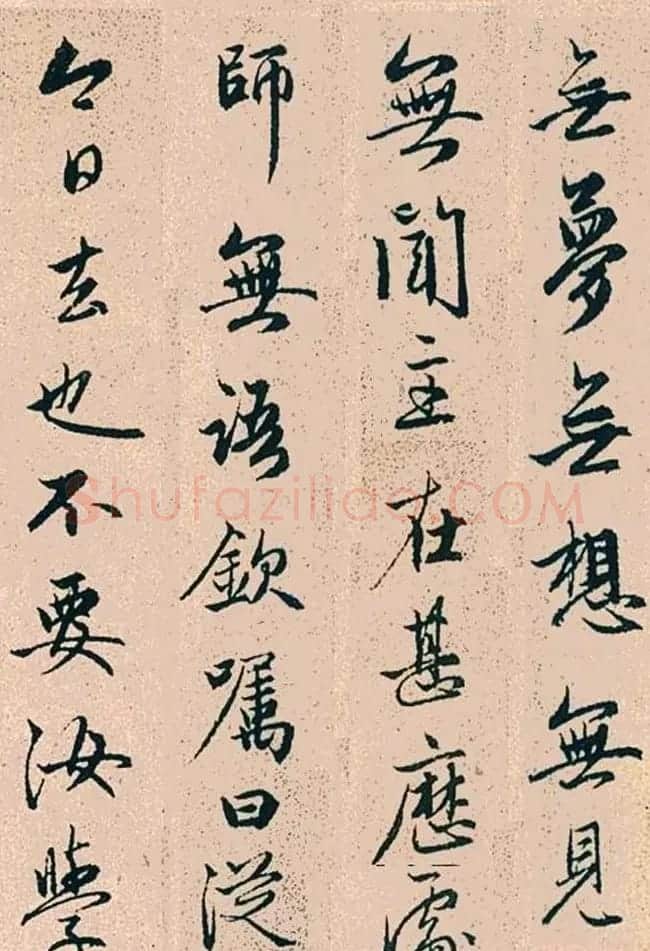 無夢無想無見
無聞主在甚麼處
師無語欽囑曰從
今日去也不要汝學
Shufaziliao.COM